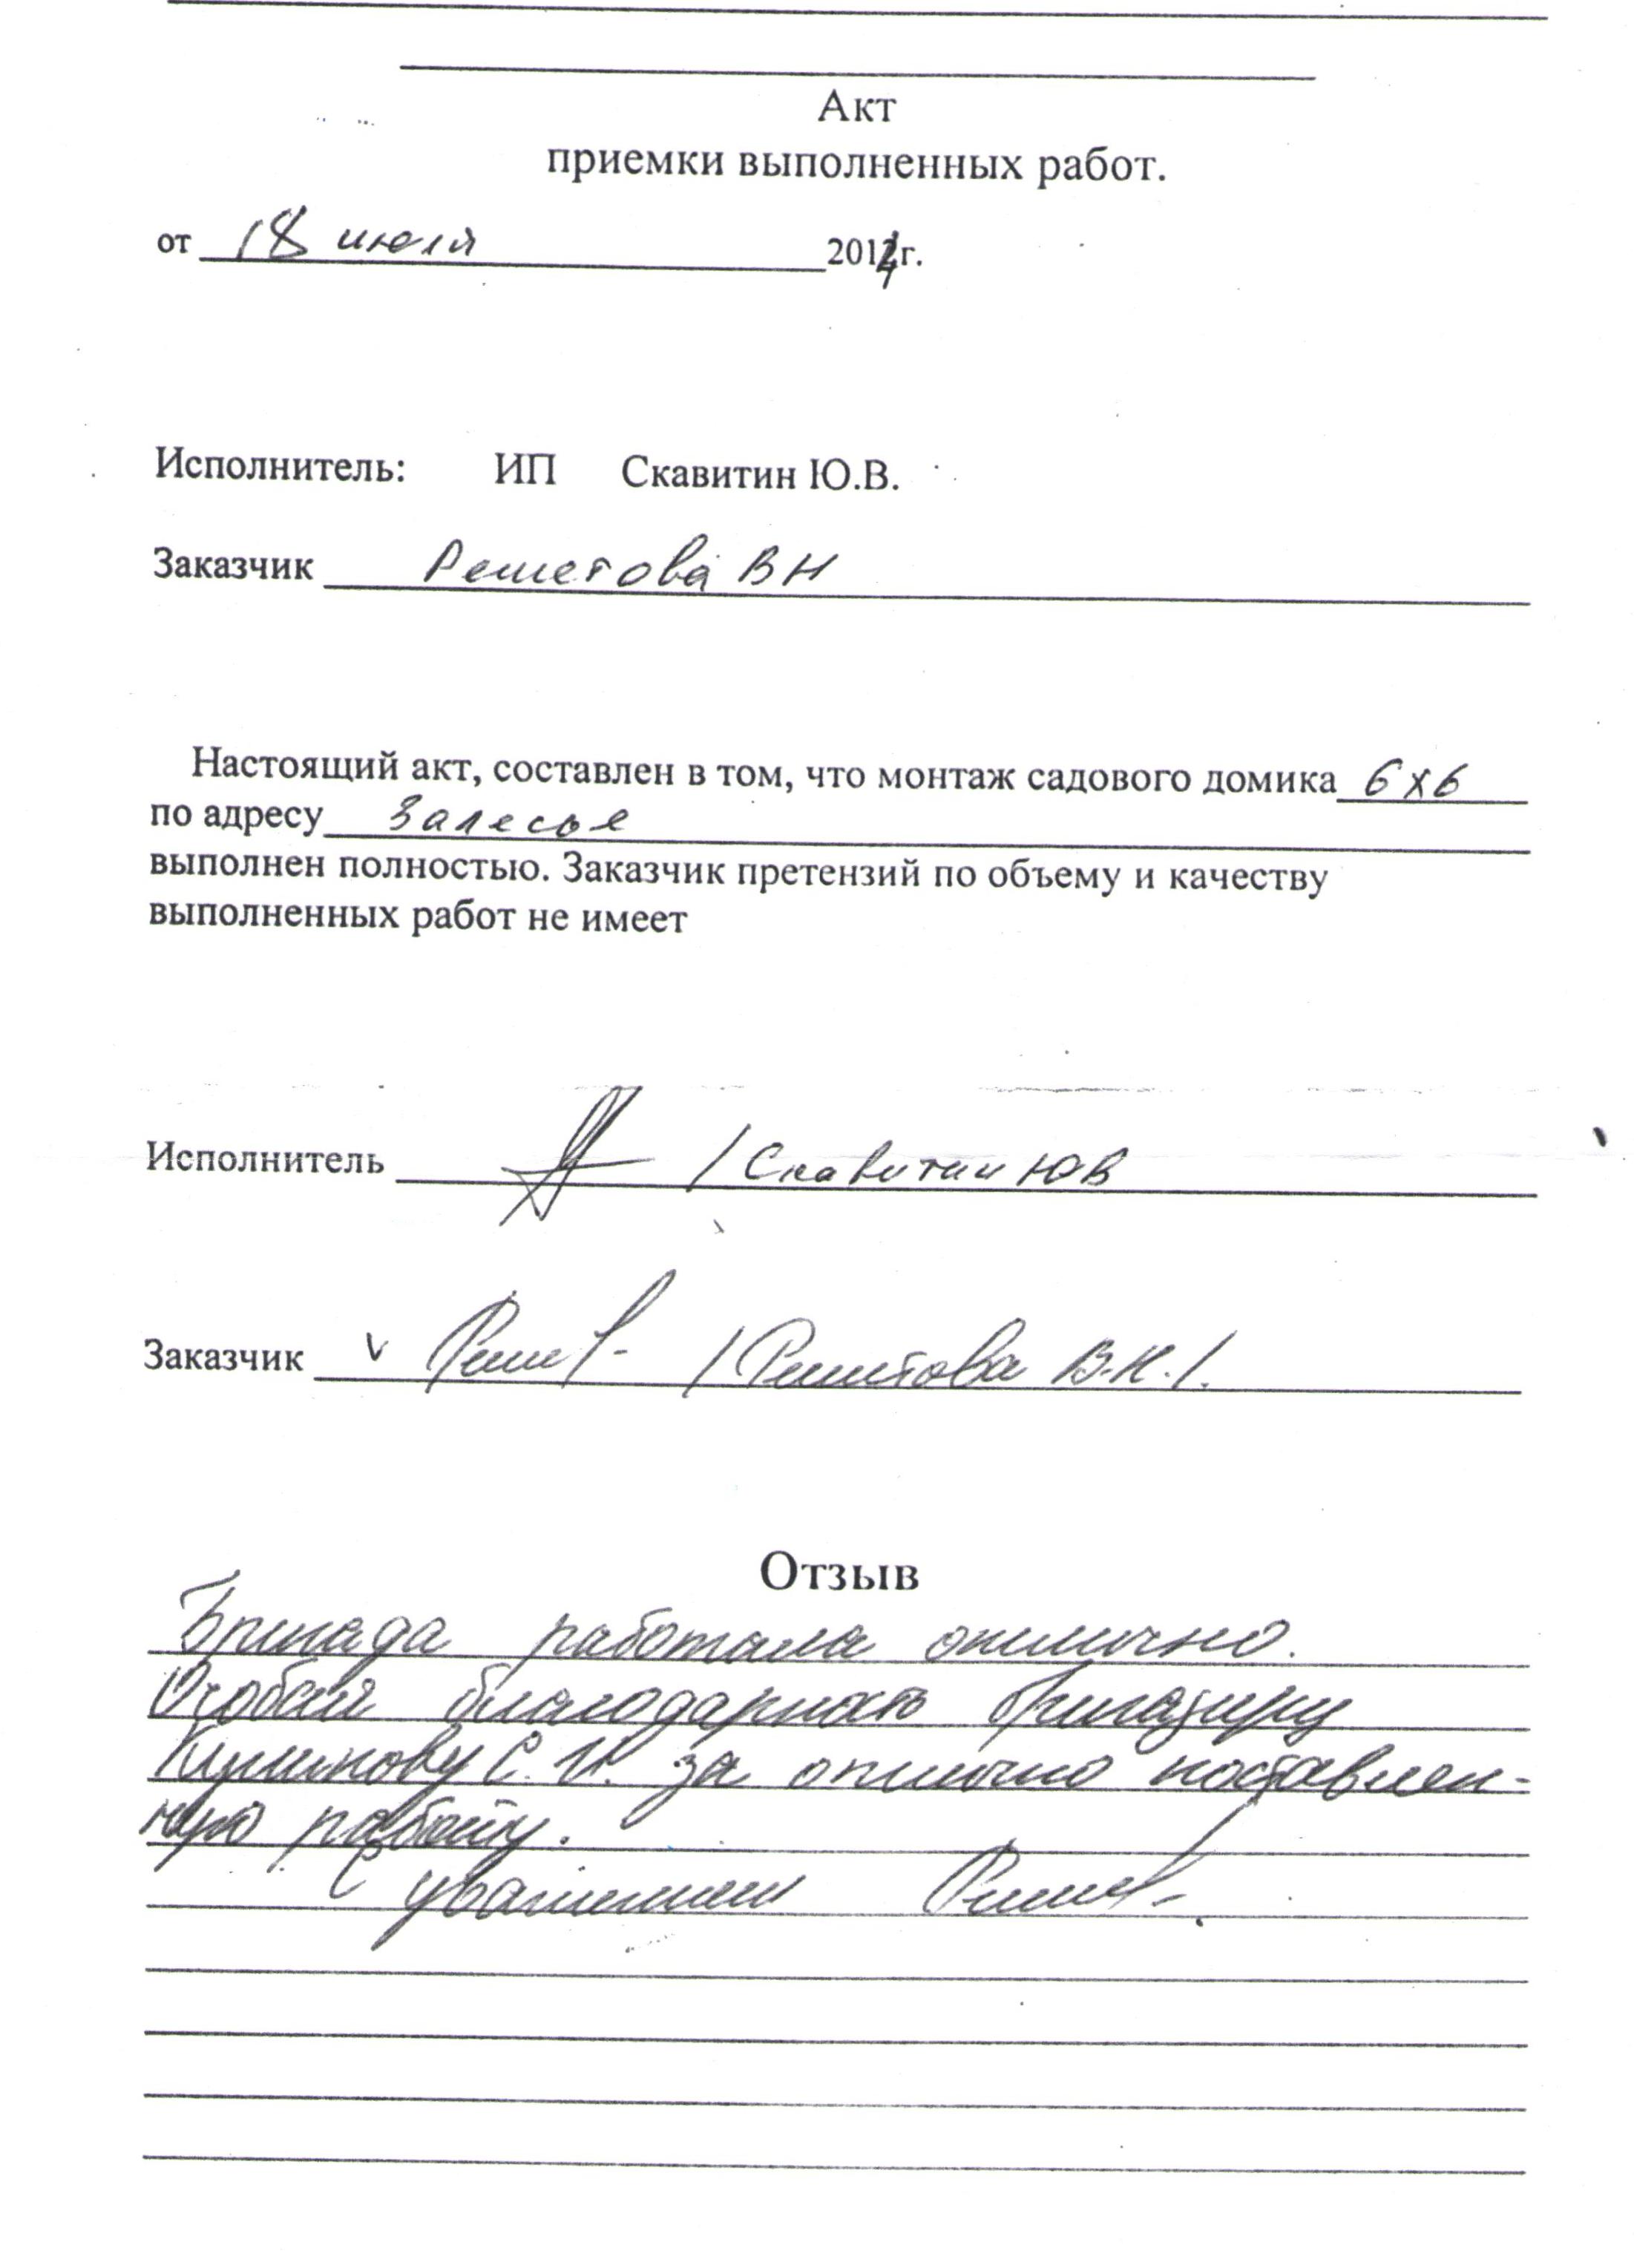 Акт
приемки выполненных работ.
от 18 июля 2014г.
Исполнитель: ИП Скавитин Ю.В.
Заказчик Решетова ВН
Настоящий акт, составлен в том, что монтаж садового домика 6х6
по адресу Залесье
выполнен полностью. Заказчик претензий по объему и качеству
выполненных работ не имеет
Исполнитель / Скавитин ЮВ
Заказчик v / Решетова В.Н. /.
Отзыв
Бригада работала отлично.
Особая благодарность бригадиру
С. И. за отлично поставлен-
ную работу.
С уважением